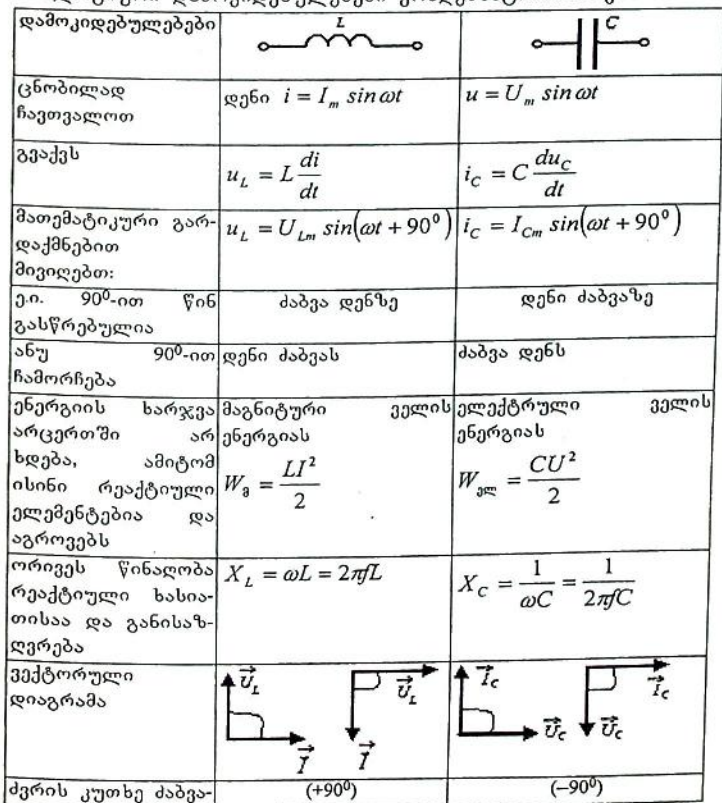 დამოკიდებულებები
L
C
ცნობილად
ჩავთვალოთ
დენი i = I_m sin ωt
u = U_m sin ωt
გვაქვს
u_L = L di/dt
i_C = C du_C/dt
მათემატიკური გარ-
დაქმნებით
მივიღებთ:
u_L = U_Lm sin(ωt + 90⁰)
i_C = I_Cm sin(ωt + 90⁰)
ე.ი. 90⁰-ით წინ
გასწრებულია
ძაბვა დენზე
დენი ძაბვაზე
ანუ 90⁰-ით
ჩამორჩება
დენი ძაბვას
ძაბვა დენს
ენერგიის ხარჯვა
არცერთში არ
ხდება, ამიტომ
ისინი რეაქტიული
ელემენტებია და
აგროვებს
მაგნიტური ველის
ენერგიას
W_მ = LI²/2
ელექტრული ველის
ენერგიას
W_ელ = CU²/2
ორივეს წინაღობა
რეაქტიული ხასია-
თისაა და განისაზ-
ღვრება
X_L = ωL = 2πfL
X_C = 1/ωC = 1/2πfC
ვექტორული
დიაგრამა
U⃗_L
I⃗
U⃗_L
I⃗
I⃗_C
U⃗_C
I⃗_C
U⃗_C
ძვრის კუთხე ძაბვა-
(+90⁰)
(−90⁰)